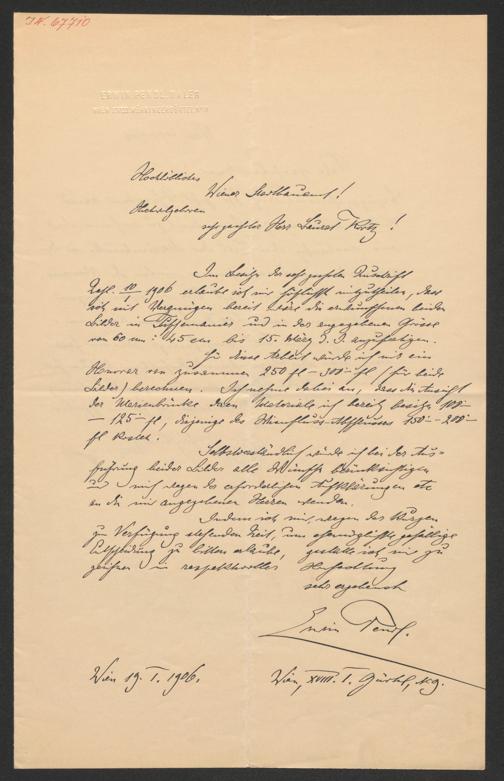 J.N. 67710
ERWIN PENDL, MALER
Hochlöbliches
Wiener Stadtbauamt!
Hochwohlgeboren
sehr geehrter Herr Baurat!
Im Besitze der sehr geehrten Zuschrift
Zahl 10/1 1906 erlaube ich mir höflichst mitzutheilen, dass
ich mit Vergnügen bereit wäre die erwünschten beiden
Bilder in und in der angegebenen Grösse
von 60 cm : 45 cm bis 15. März d. J. anzufertigen.
Für diese Arbeit würde ich mir ein
Honorar von zusammen 250 fl – 300 fl (für beide
Bilder) berechnen. Ich nehme dabei an, dass die Ansicht
der bereits besitze 100
– 125 fl, diejenige des 150 – 200
fl kostet.
Selbstverständlich würde ich bei der Aus-
führung beider Bilder alle Wünsche berücksichtigen
und mich wegen der erforderlichen Aufklärungen etc
an die mir angegebenen Herren wenden.
Indem ich mir, wegen der kurzen
zur Verfügung stehenden Zeit, um ehemöglichste gefällige
Entscheidung zu bitten erlaube, gestatte ich mir zu
zeichnen in respektvoller Hochachtung
sehr ergebenst
Erwin Pendl.
Wien 19. I. 1906.
Wien, XVIII. Gürtel, 9.